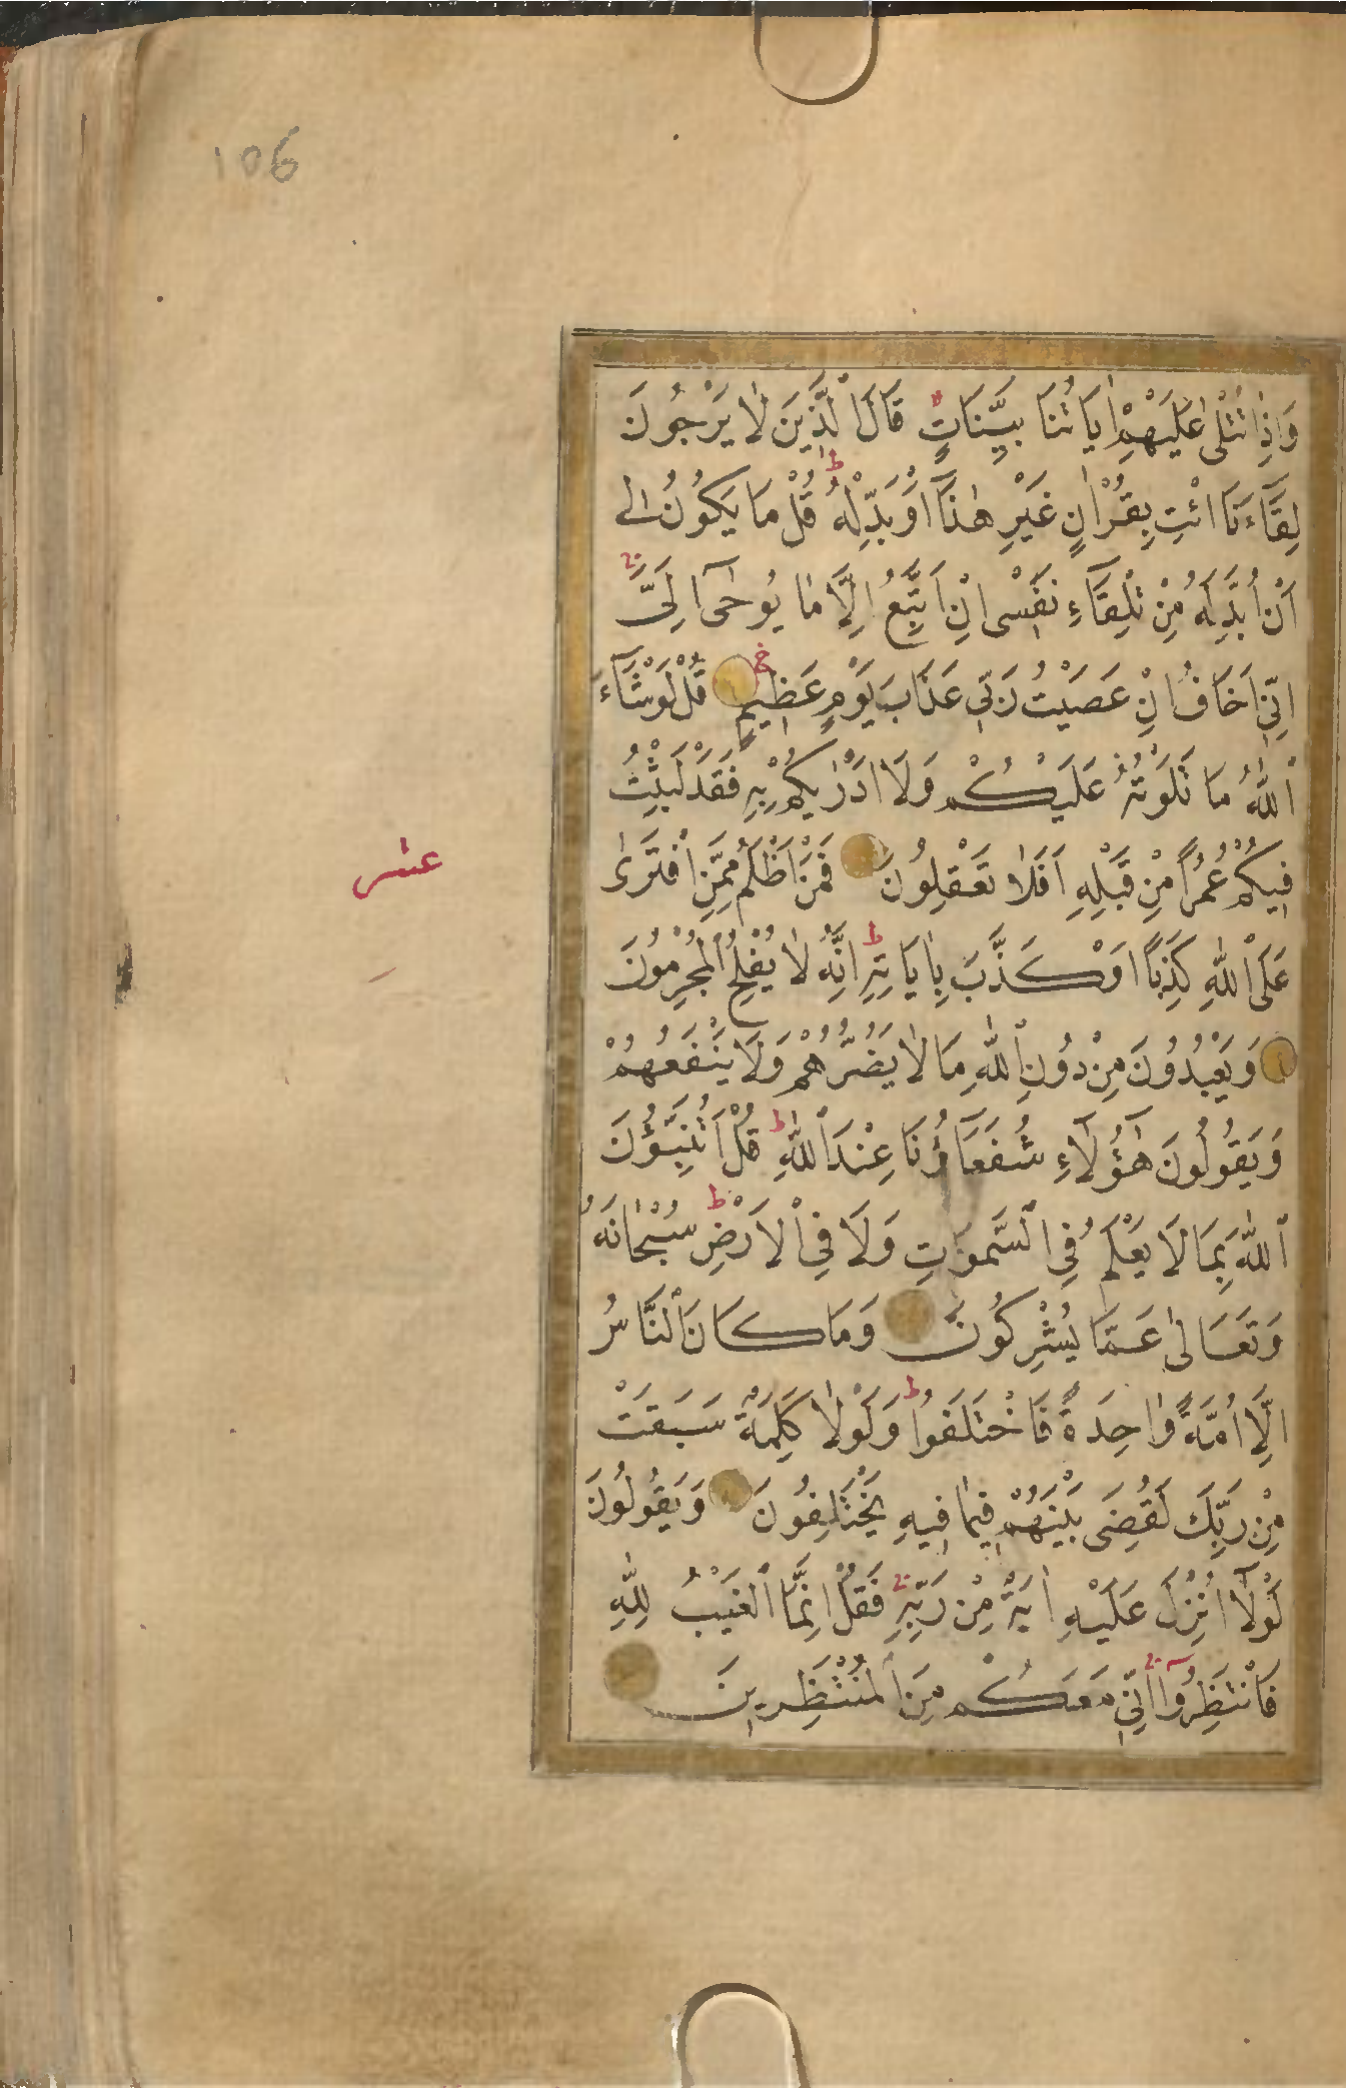 106
وَاِذَا تُتْلٰى عَلَيْهِمْ اٰيَاتُنَا بَيِّنَاتٍ قَالَ الَّذِينَ لَا يَرْجُونَ
لِقَٓاءَنَا ائْتِ بِقُرْاٰنٍ غَيْرِ هٰذَٓا اَوْ بَدِّلْهُ ط قُلْ مَا يَكُونُ لٖى
اَنْ اُبَدِّلَهُ مِنْ تِلْقَٓاءِ نَفْسٖى اِنْ اَتَّبِعُ اِلَّا مَا يُوحٰٓى اِلَىَّ
اِنّٖى اَخَافُ اِنْ عَصَيْتُ رَبّٖى عَذَابَ يَوْمٍ عَظِيمٍ قُلْ لَوْ شَٓاءَ
اللّٰهُ مَا تَلَوْتُهُ عَلَيْكُمْ وَلَا اَدْرٰيكُمْ بِهٖ فَقَدْ لَبِثْتُ
فِيكُمْ عُمُرًا مِنْ قَبْلِهٖ اَفَلَا تَعْقِلُونَ فَمَنْ اَظْلَمُ مِمَّنِ افْتَرٰى
عشر
عَلَى اللّٰهِ كَذِبًا اَوْ كَذَّبَ بِاٰيَاتِهٖ ط اِنَّهُ لَا يُفْلِحُ الْمُجْرِمُونَ
وَيَعْبُدُونَ مِنْ دُونِ اللّٰهِ مَا لَا يَضُرُّهُمْ وَلَا يَنْفَعُهُمْ
وَيَقُولُونَ هٰٓؤُلَٓاءِ شُفَعَٓاؤُنَا عِنْدَ اللّٰهِ ط قُلْ اَتُنَبِّؤُنَ
اللّٰهَ بِمَا لَا يَعْلَمُ فِى السَّمٰوَاتِ وَلَا فِى الْاَرْضِ ط سُبْحَانَهُ
وَتَعَالٰى عَمَّا يُشْرِكُونَ وَمَا كَانَ النَّاسُ
اِلَّا اُمَّةً وَاحِدَةً فَاخْتَلَفُوا ط وَلَوْلَا كَلِمَةٌ سَبَقَتْ
مِنْ رَبِّكَ لَقُضِىَ بَيْنَهُمْ فِيمَا فِيهِ يَخْتَلِفُونَ وَيَقُولُونَ
لَوْلَٓا اُنْزِلَ عَلَيْهِ اٰيَةٌ مِنْ رَبِّهٖ فَقُلْ اِنَّمَا الْغَيْبُ لِلّٰهِ
فَانْتَظِرُوٓا اِنّٖى مَعَكُمْ مِنَ الْمُنْتَظِرِينَ